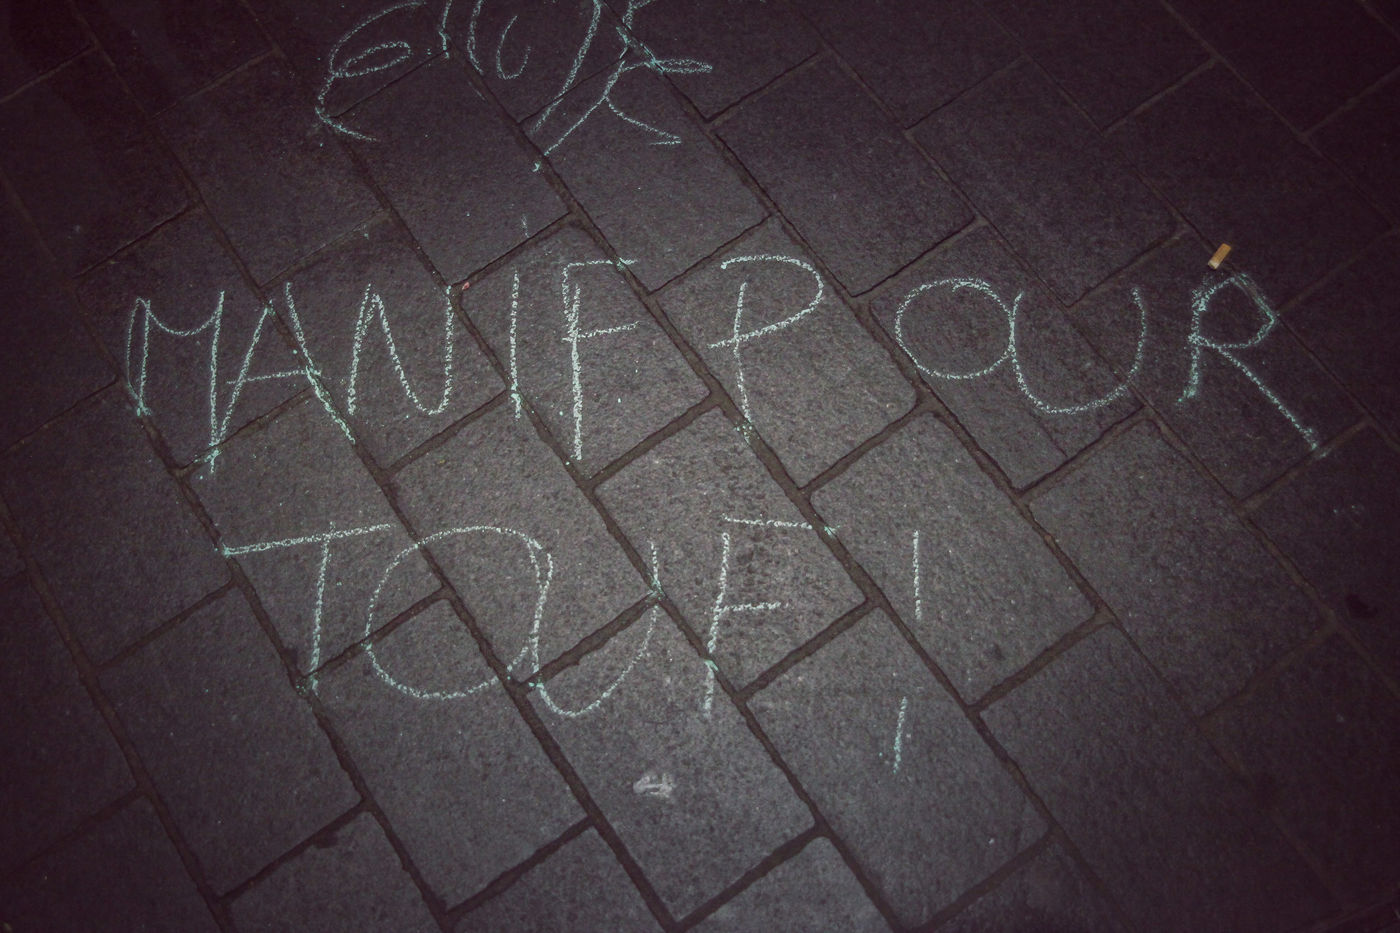 MANIF POUR
TOUF!